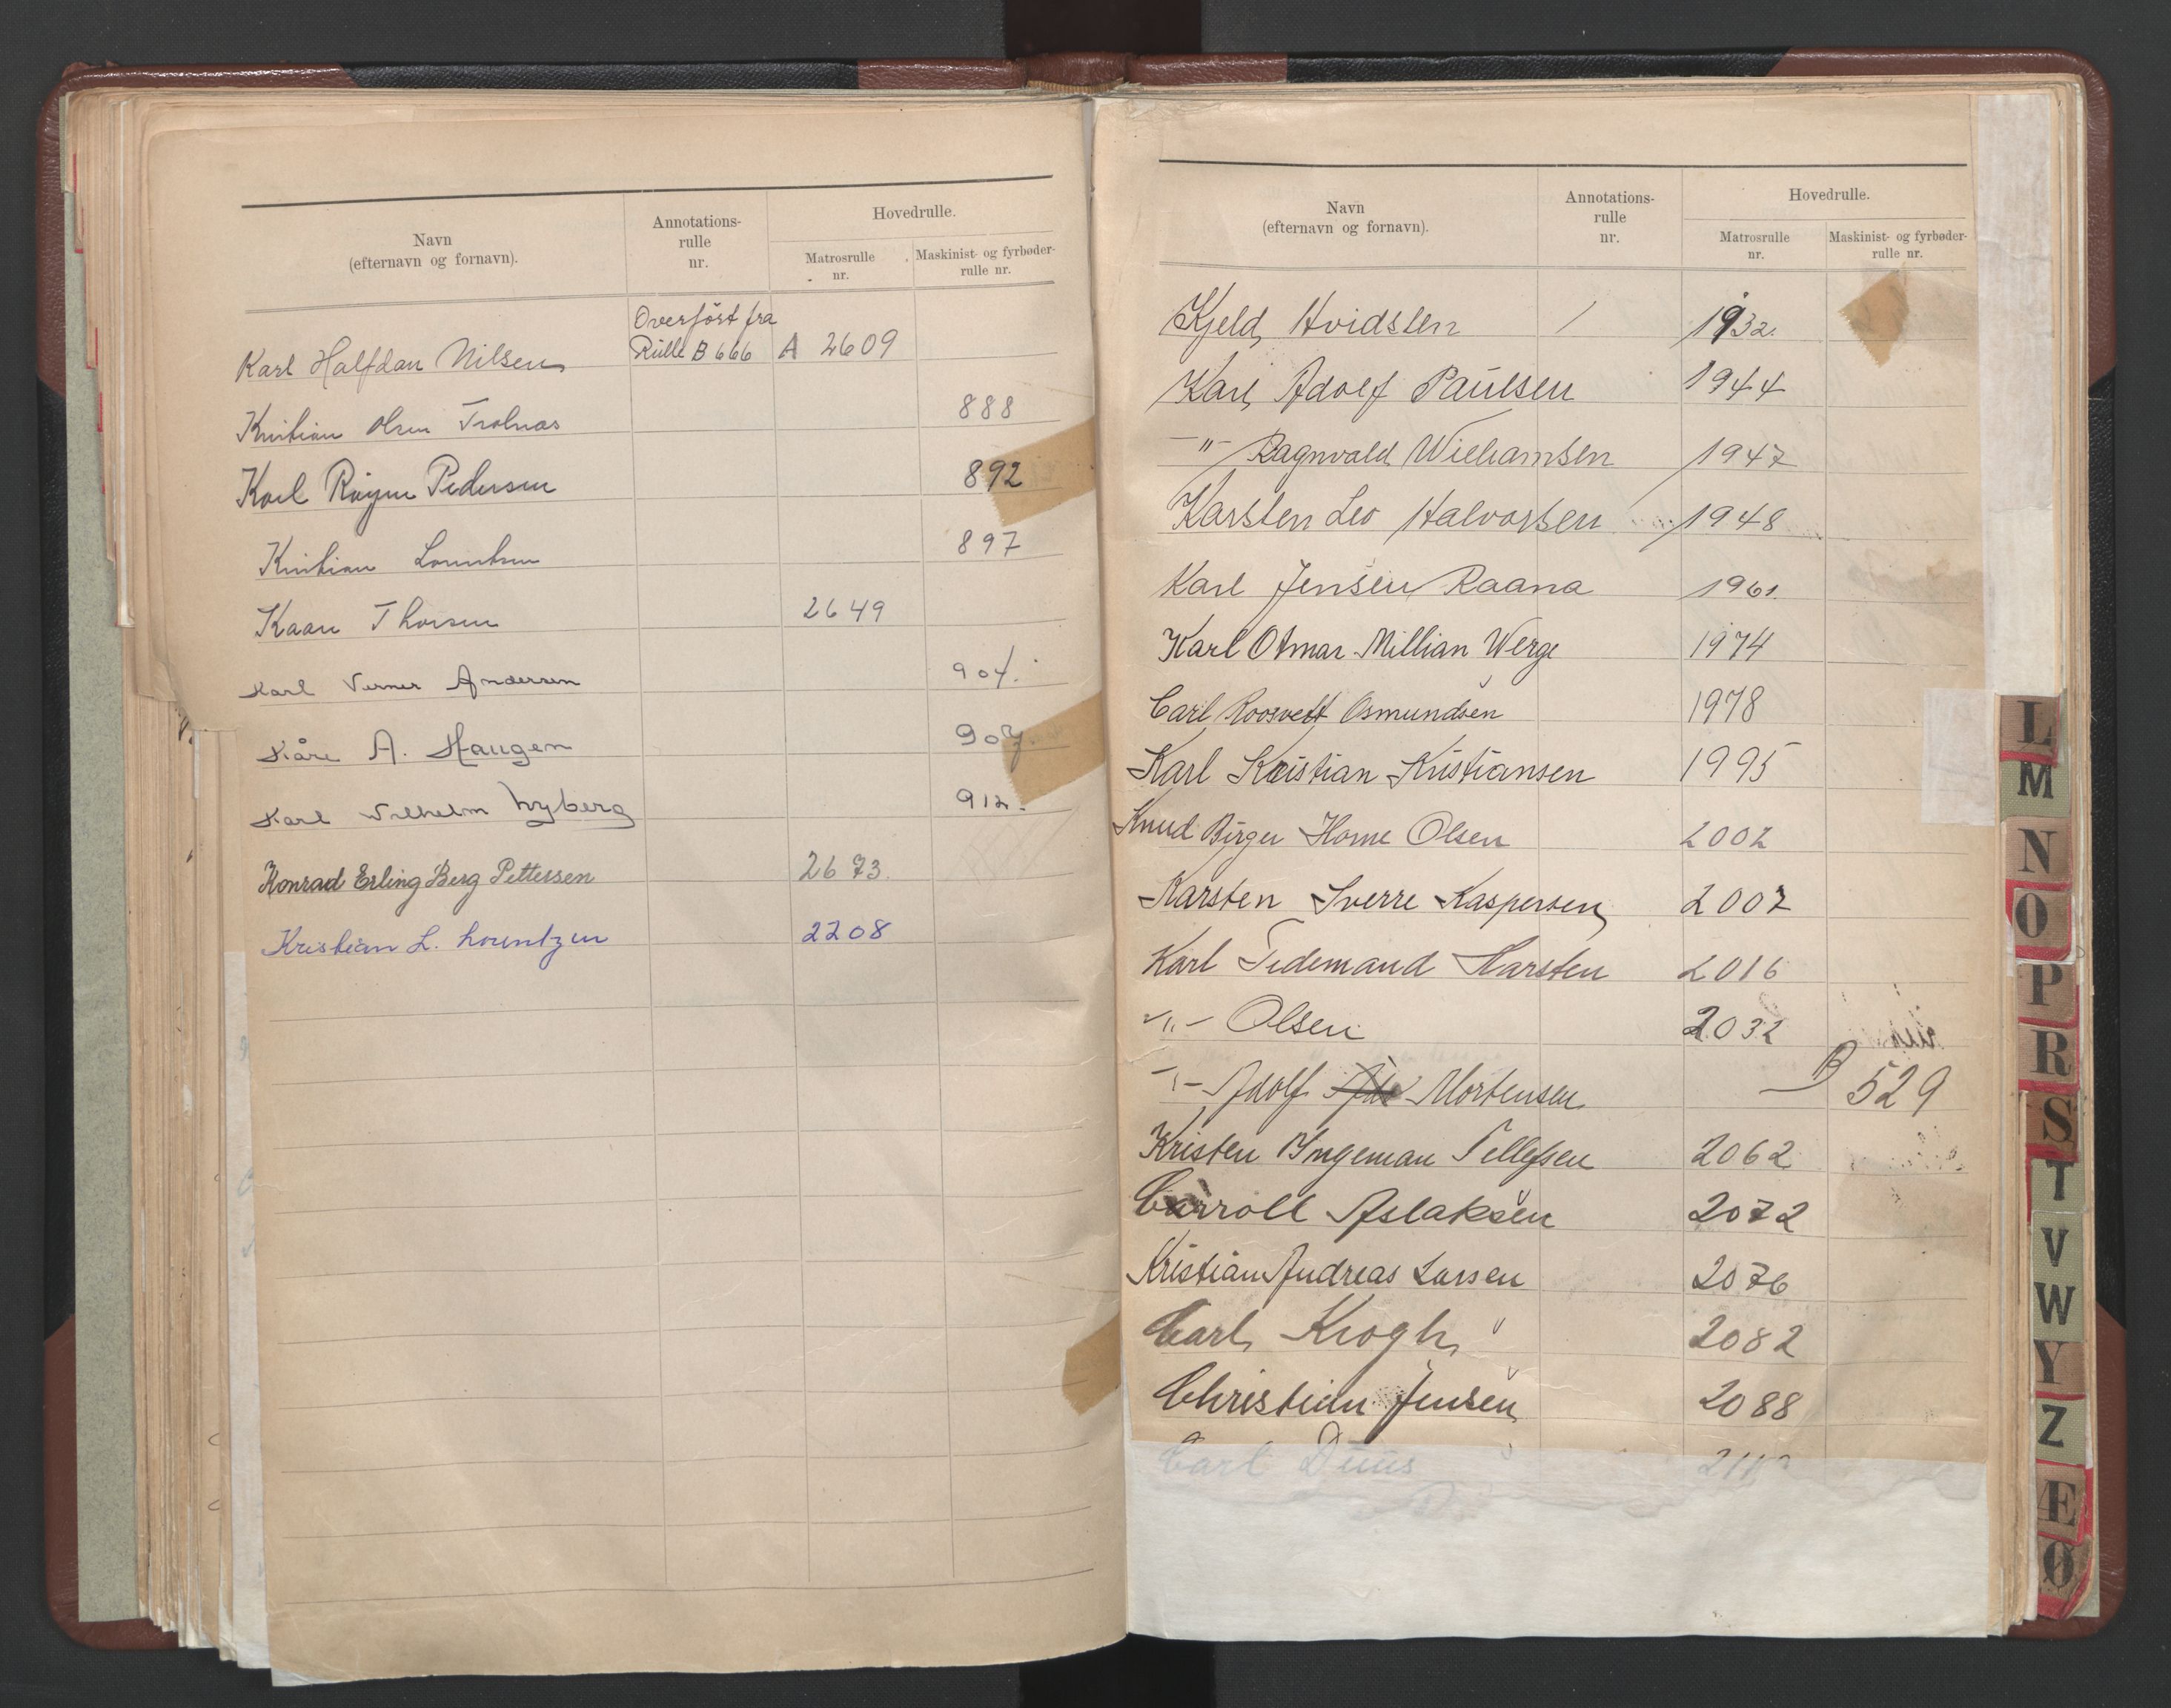 Navn
(efternavn og fornavn).
Annotations-
rulle
nr.
Hovedrulle.
Matrosrulle
nr.
Maskinist- og fyrbøder-
rulle nr.
Overført fra
Karl Halfdan Nilsen Rulle B 666 A 2609
Kristian Olsen 888
Karl Pedersen 892
Kristian Lorentsen 897
Kaare Thorsen 2649
Karl Verner Andersen 904.
Kåre A. Haugen 907.
Karl Vilhelm Nyberg 912.
Konrad Erling Berg Pettersen 2673.
Kristian L. Lorentzen 2208
Navn
(efternavn og fornavn).
Annotations-
rulle
nr.
Hovedrulle.
Matrosrulle
nr.
Maskinist- og fyrbøder-
rulle nr.
Kjeld Hvidsten / 1932.
Karl Adolf Paulsen 1944
-"- Ragnvald Williamsen 1947
Karsten Leo Halvorsen 1948
Karl Jensen Raana 1961.
Karl Otmar Millian Werge 1974
Carl Roosvelt Osmundsen 1978
Karl Kristian Kristiansen 1995
Knud Birger Home Olsen 2002
Karsten Sverre Kaspersen 2007
Karl Tidemand Karsten 2016
-"- Olsen 2032
-"- Adolf Mortensen B 529
Kristen Yngeman Tellefsen 2062
Carroll Aslaksen 2072
Kristian Andreas Larsen 2076
Carl Krogh 2082
Christian Jensen 2088
Carl Duus
L
M
N
O
P
R
S
T
V
W
Y
Z
Æ
Ø